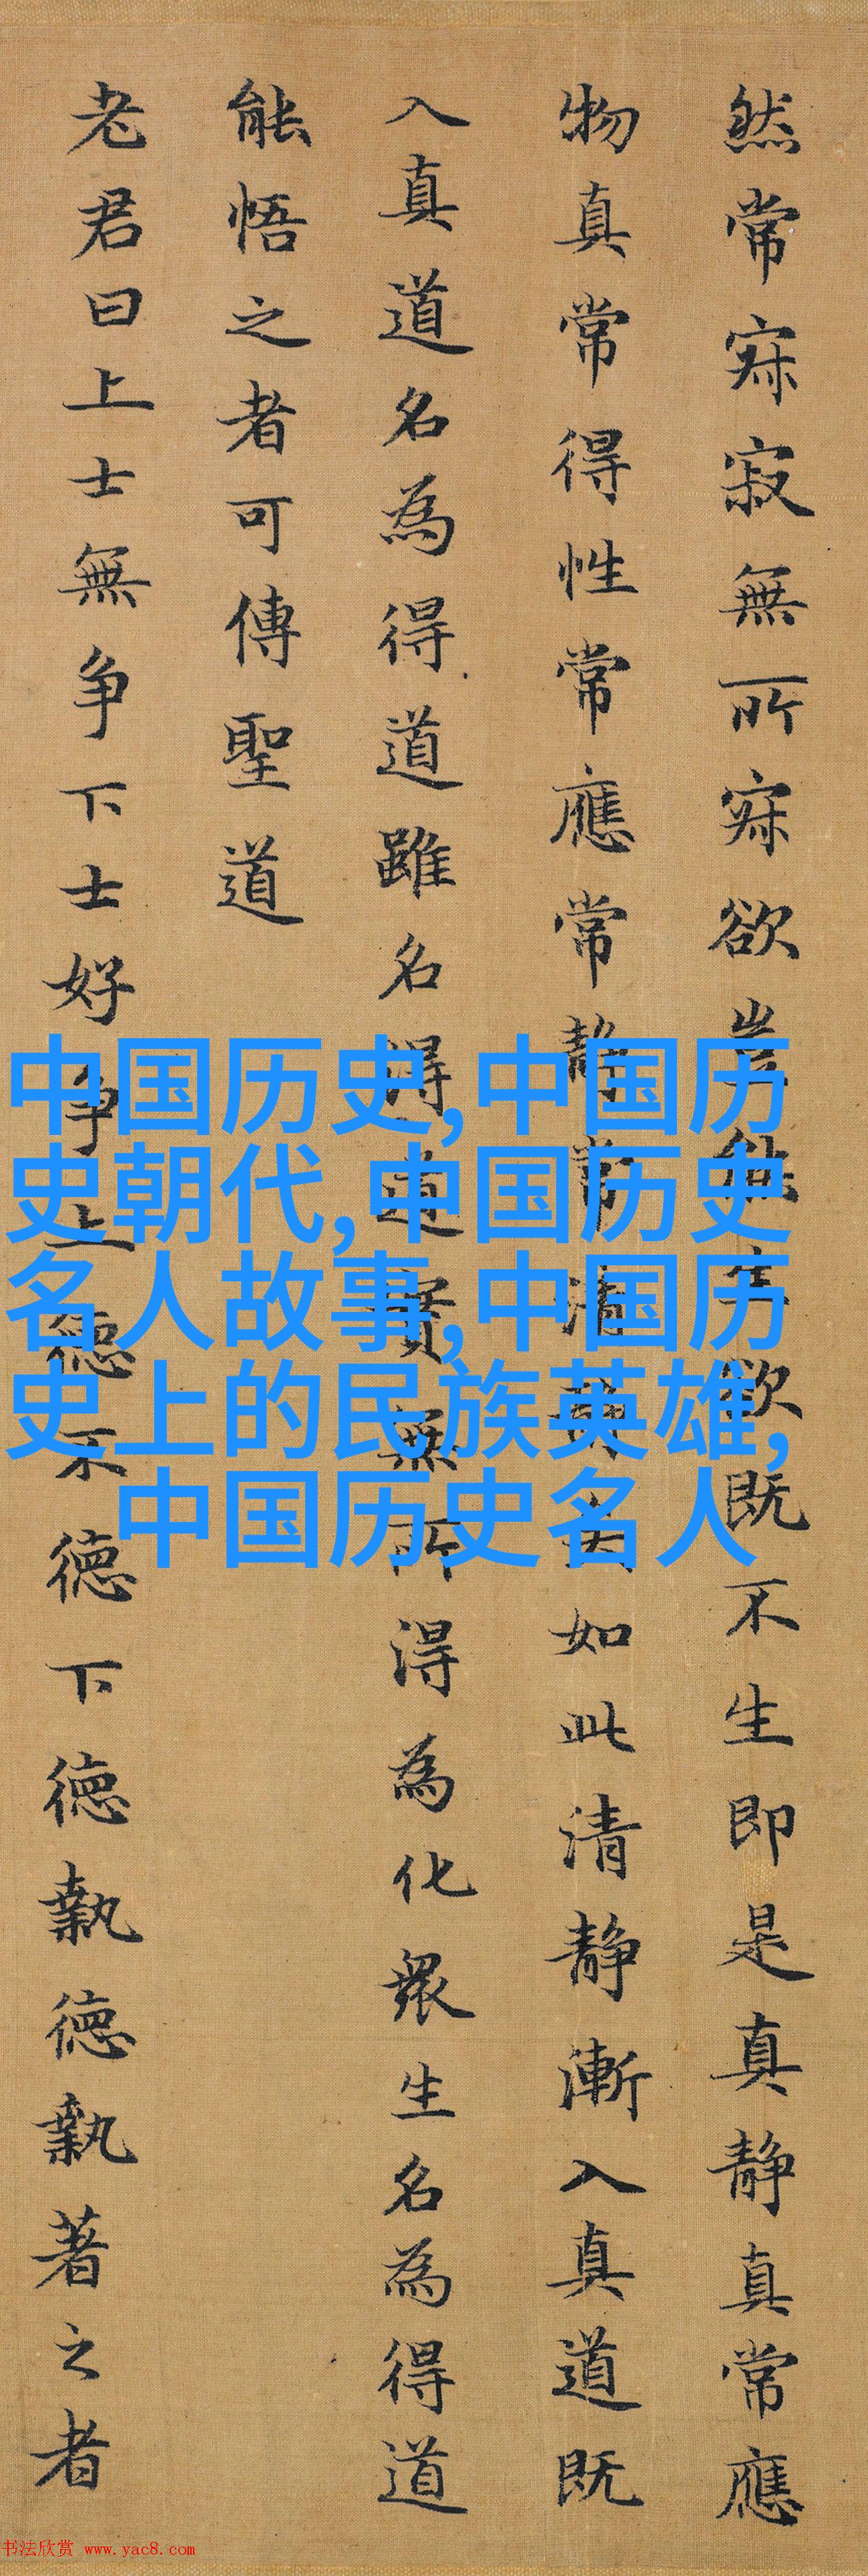 然常寂寂無所寂欲豈能生欲既不生即是真静真常應
物真常得性常應常静常清静矣如此清静漸入真道既
入真道名為得道雖名得道實無所得為化衆生名為得道
能悟之者可傳聖道
老君曰上士無争下士好争上德不德下德執德執著之者
中国历史,中国历
史朝代,中国历史
名人故事,中国历
史上的民族英雄,
中国历史名人
书法欣赏 www.yac8.com